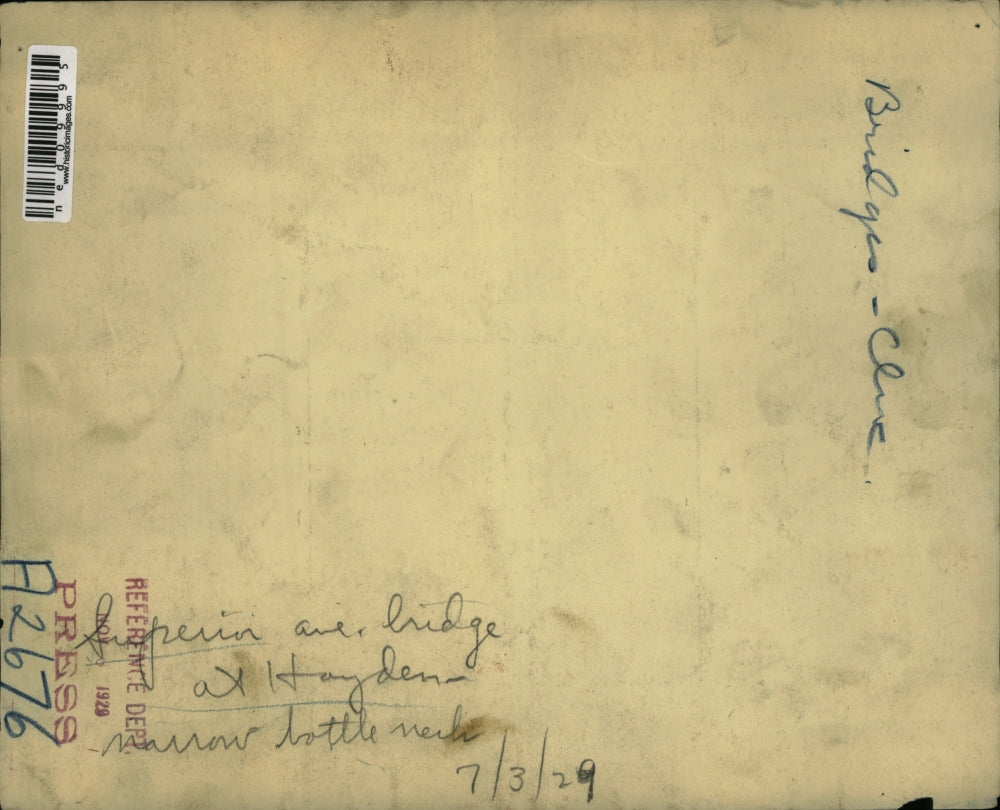 Bridges - Cleve.
ned09995
www.historicimages.com
A2676
PRESS
REFERENCE DEPT.
1929
Superior ave. bridge
at Hayden -
narrow bottle neck
7/3/29